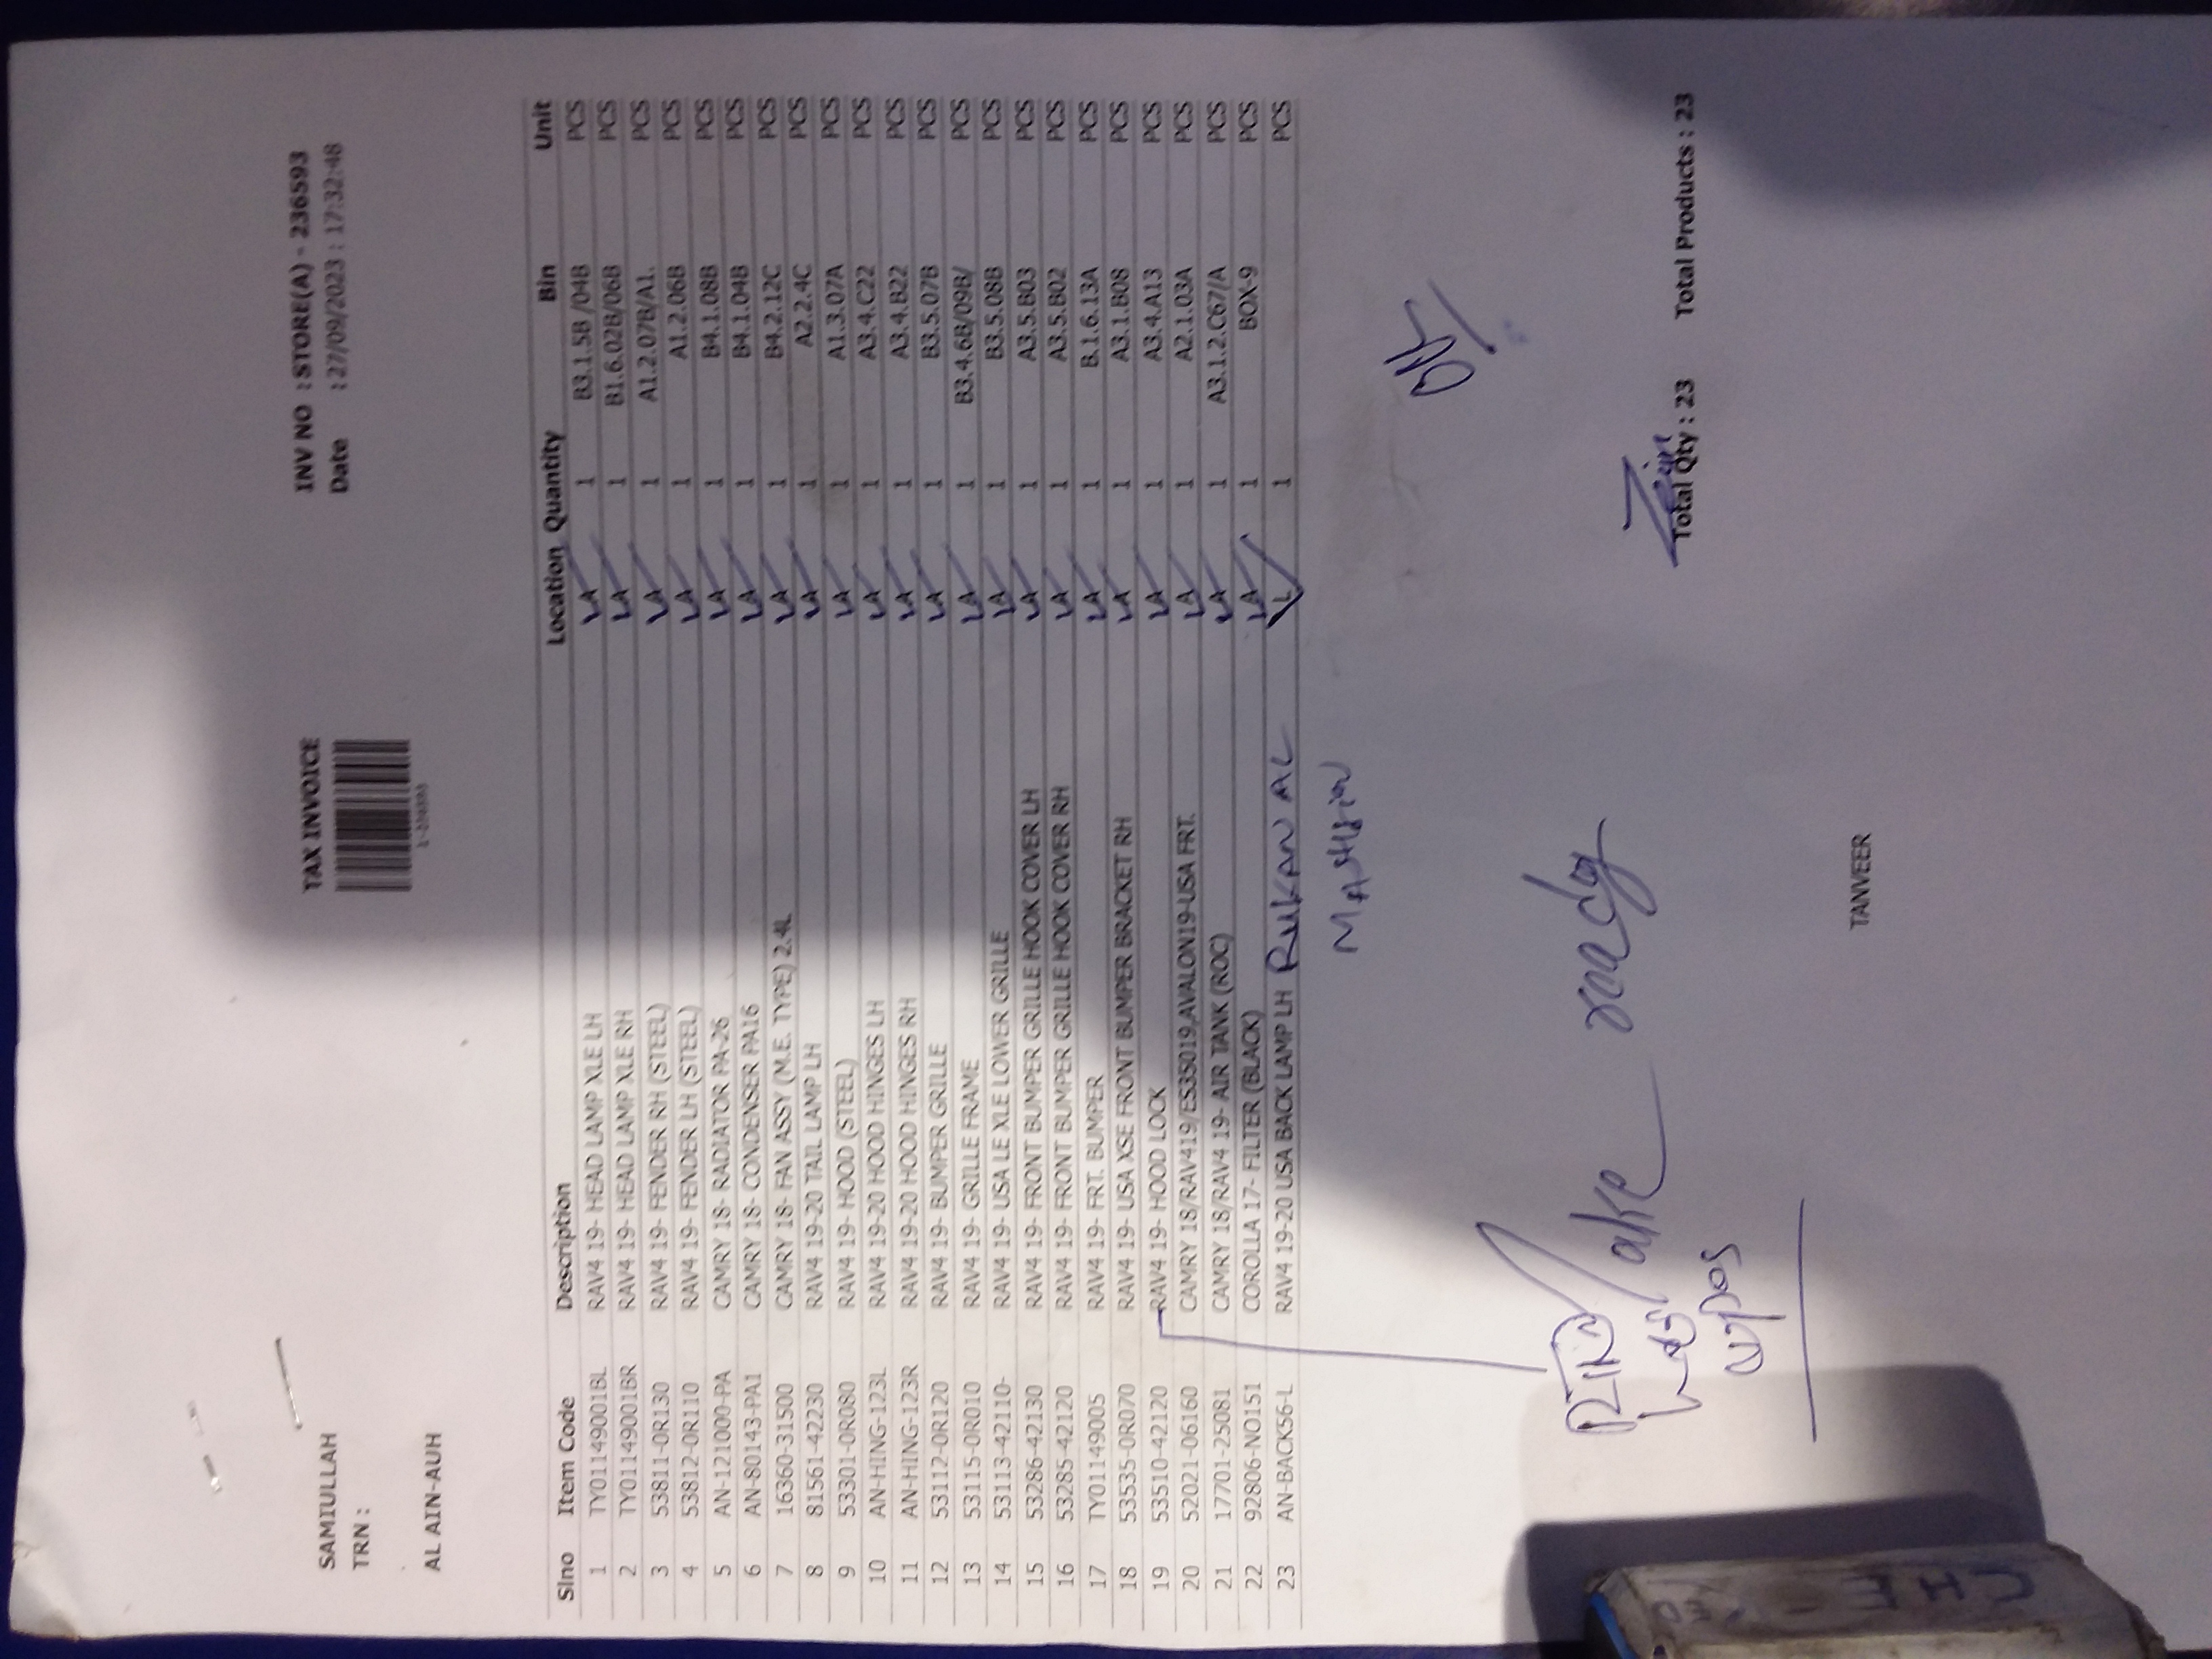 TAX INVOICE
SAMIULLAH
INV NO : STORE(A) - 236593
TRN :
Date : 27/09/2023 : 17:32:48
AL AIN-AUH
Slno Item Code Description Location Quantity Bin Unit
1 TY01149001BL RAV4 19- HEAD LAMP XLE LH LA 1 B3.1.5B /04B PCS
2 TY01149001BR RAV4 19- HEAD LAMP XLE RH LA 1 B1.6.02B/06B PCS
3 53811-0R130 RAV4 19- FENDER RH (STEEL) LA 1 A1.2.07B/A1. PCS
4 53812-0R110 RAV4 19- FENDER LH (STEEL) LA 1 A1.2.06B PCS
5 AN-121000-PA CAMRY 18- RADIATOR PA-26 LA 1 B4.1.08B PCS
6 AN-80143-PA1 CAMRY 18- CONDENSER PA16 LA 1 B4.1.04B PCS
7 16360-31500 CAMRY 18- FAN ASSY (M.E. TYPE) 2.4L LA 1 B4.2.12C PCS
8 81561-42230 RAV4 19-20 TAIL LAMP LH LA 1 A2.2.4C PCS
9 53301-0R080 RAV4 19- HOOD (STEEL) LA 1 A1.3.07A PCS
10 AN-HING-123L RAV4 19-20 HOOD HINGES LH LA 1 A3.4.C22 PCS
11 AN-HING-123R RAV4 19-20 HOOD HINGES RH LA 1 A3.4.B22 PCS
12 53112-0R120 RAV4 19- BUMPER GRILLE LA 1 B3.5.07B PCS
13 53115-0R010 RAV4 19- GRILLE FRAME LA 1 B3.4.6B/09B/ PCS
14 53113-42110- RAV4 19- USA LE XLE LOWER GRILLE LA 1 B3.5.08B PCS
15 53286-42130 RAV4 19- FRONT BUMPER GRILLE HOOK COVER LH LA 1 A3.5.B03 PCS
16 53285-42120 RAV4 19- FRONT BUMPER GRILLE HOOK COVER RH LA 1 A3.5.B02 PCS
17 TY01149005 RAV4 19- FRT. BUMPER LA 1 B.1.6.13A PCS
18 53535-0R070 RAV4 19- USA XSE FRONT BUMPER BRACKET RH LA 1 A3.1.B08 PCS
19 53510-42120 RAV4 19- HOOD LOCK LA 1 A3.4.A13 PCS
20 52021-06160 CAMRY 18/RAV419/ES35019,AVALON19-USA FRT. LA 1 A2.1.03A PCS
21 17701-25081 CAMRY 18/RAV4 19- AIR TANK (ROC) LA 1 A3.1.2.C67/A PCS
22 92806-NO151 COROLLA 17- FILTER (BLACK) LA 1 BOX-9 PCS
23 AN-BACK56-L RAV4 19-20 USA BACK LAMP LH RUKAN AL L 1 PCS
ready
Total Qty : 23 Total Products : 23
TANVEER